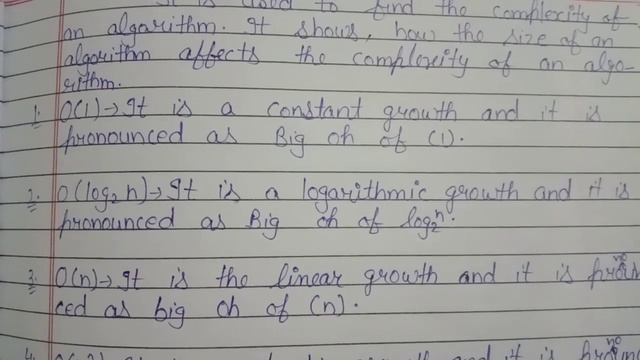 It is used to find the complexity of
an algorithm. It shows, how the size of an
algorithm affects the complexity of an algo-
rithm.
1. O(1)→ It is a constant growth and it is
pronounced as Big oh of (1).
2. O(log₂ n)→ It is a logarithmic growth and it is
pronounced as Big oh of log₂ⁿ.
3. O(n)→ It is the linear growth and it is pronoun
ced as big oh of (n).
4. growth and it is